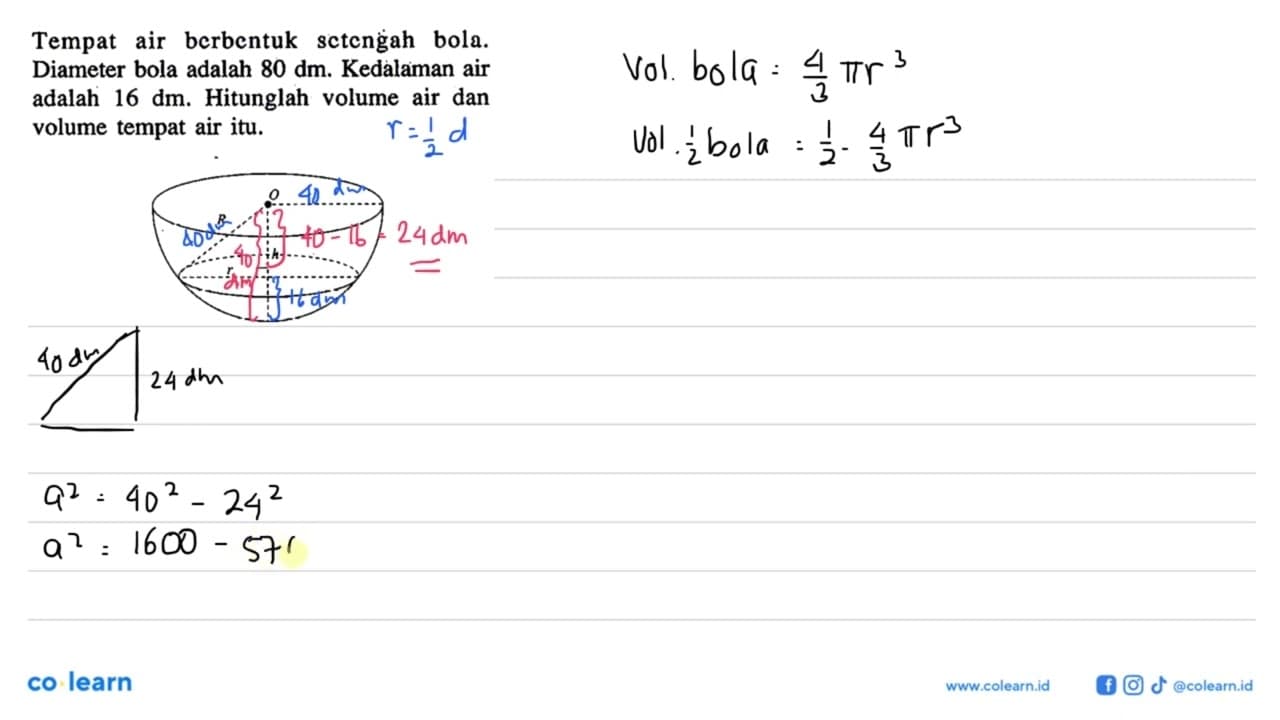 Tempat air berbentuk setengah bola.
Diameter bola adalah 80 dm. Kedalaman air
adalah 16 dm. Hitunglah volume air dan
volume tempat air itu.
r = 1/2 d
Vol. bola = 4/3 πr³
Vol. 1/2 bola = 1/2 . 4/3 πr³
O
40 dm
R
40 dm
?
40 - 16 = 24 dm
40 dm
h
r
16 dm
40 dm
24 dm
a² = 40² - 24²
a² = 1600 - 57
co learn
www.colearn.id
@colearn.id